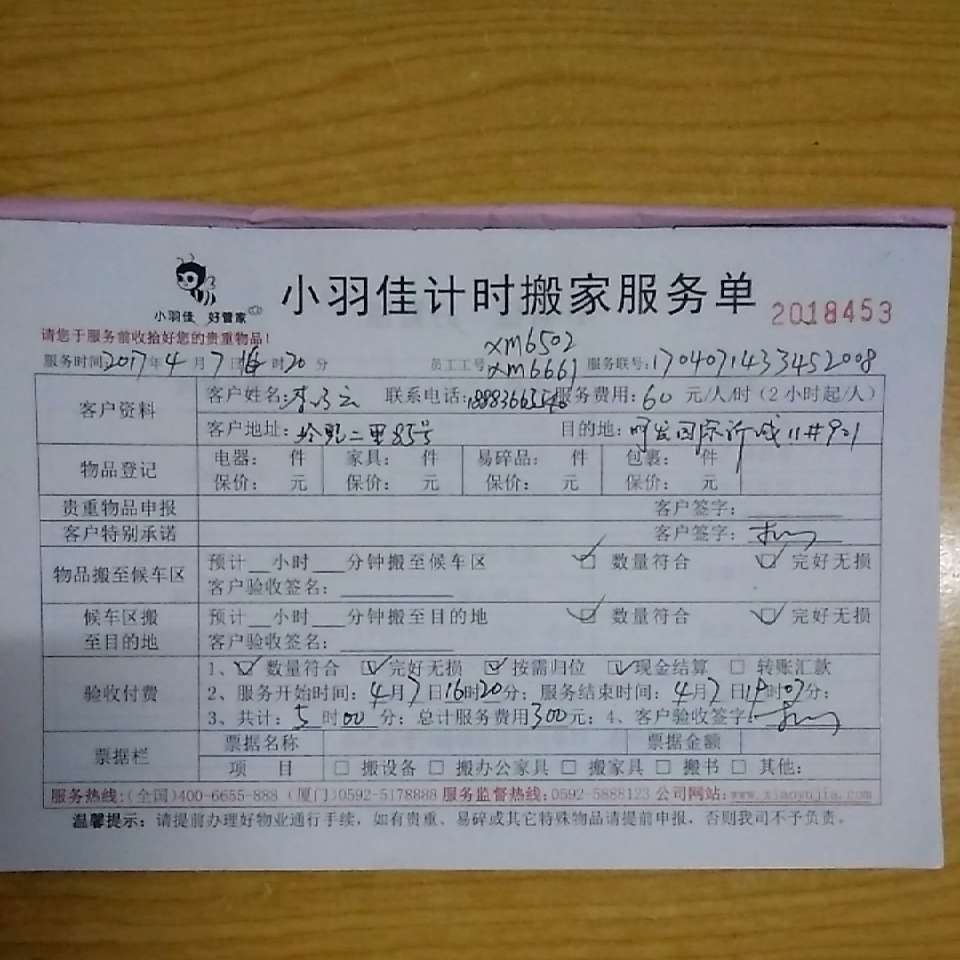 小羽佳 好管家
小羽佳计时搬家服务单
2018453
请您于服务前收拾好您的贵重物品!
xm6502
服务时间:2017年4月7日16时20分 员工工号 xm6661 服务联号:1704071433452008
客户资料 客户姓名: 联系电话: 服务费用:60元/人/时(2小时起/人)
客户地址: 二里85号 目的地: 国际新城11#901
物品登记 电器: 件 家具: 件 易碎品: 件 包裹: 件
保价: 元 保价: 元 保价: 元 保价: 元
贵重物品申报 客户签字:
客户特别承诺 客户签字:
物品搬至候车区 预计__小时___分钟搬至候车区 ☑ 数量符合 ☑ 完好无损
客户验收签名:
候车区搬至目的地 预计__小时___分钟搬至目的地 ☑ 数量符合 ☑ 完好无损
客户验收签名:
验收付费 1、☑ 数量符合 ☑ 完好无损 ☑ 按需归位 ☑ 现金结算 □ 转账汇款
2、服务开始时间:4月7日16时20分;服务结束时间:4月7日 时07分;
3、共计:5时00分;总计服务费用300元;4、客户验收签字:
票据栏 票据名称 票据金额
项 目 □ 搬设备 □ 搬办公家具 □ 搬家具 □ 搬书 □ 其他:
服务热线:(全国)400-6655-888 (厦门)0592-5178888 服务监督热线:0592-5888123 公司网站:www.xiaoyujia.com
温馨提示:请提前办理好物业通行手续,如有贵重、易碎或其它特殊物品请提前申报,否则我司不予负责。